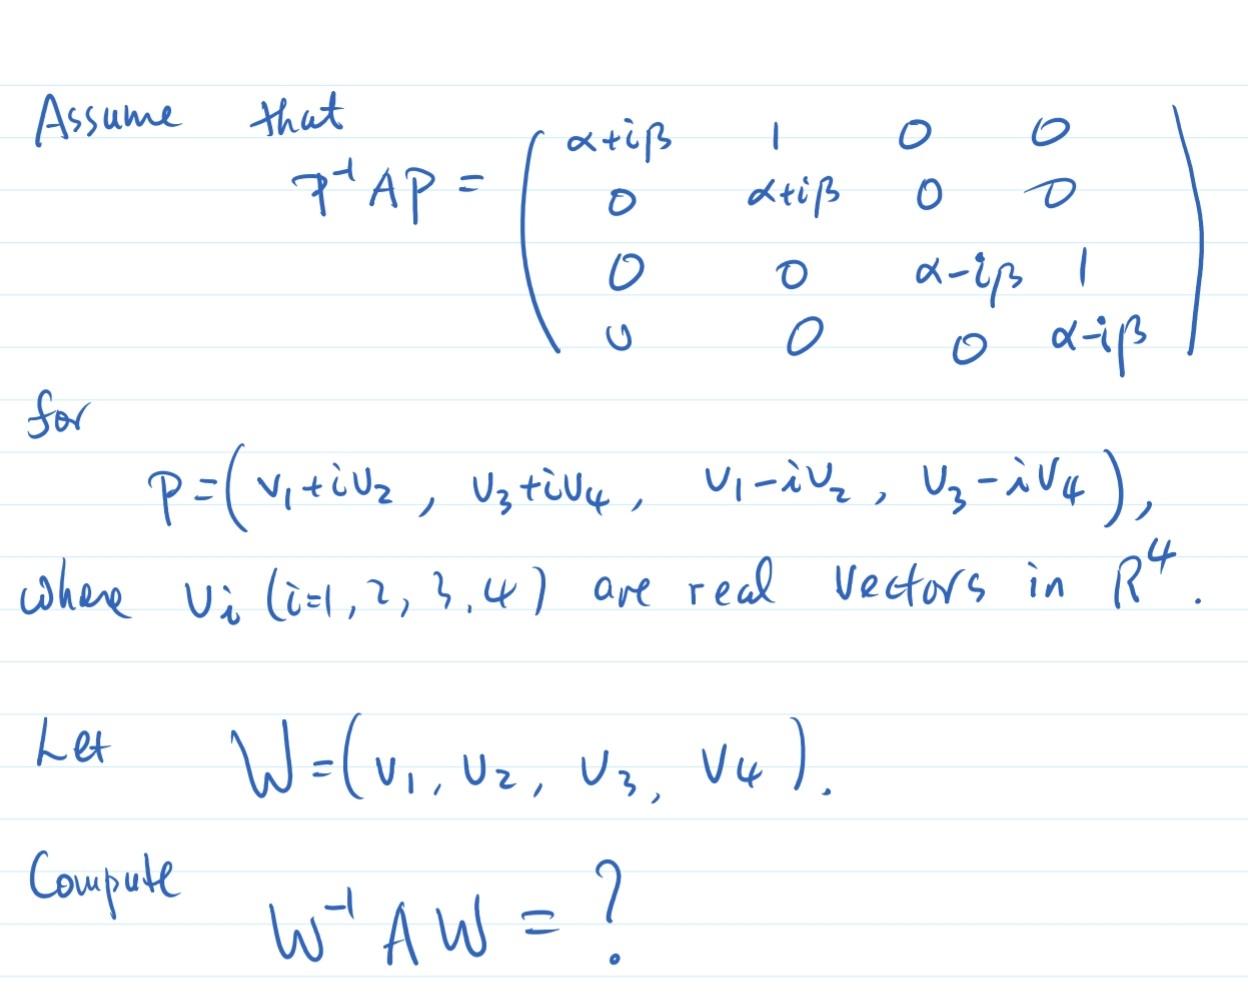 Assume that
P⁻¹AP = ( α+iβ 1 0 0
0 α+iβ 0 0
0 0 α-iβ 1
0 0 0 α-iβ )
for
P=(v₁+iv₂, v₃+iv₄, v₁-iv₂, v₃-iv₄),
where vᵢ (i=1,2,3,4) are real vectors in R⁴.
Let W=(v₁, v₂, v₃, v₄).
Compute
W⁻¹AW = ?